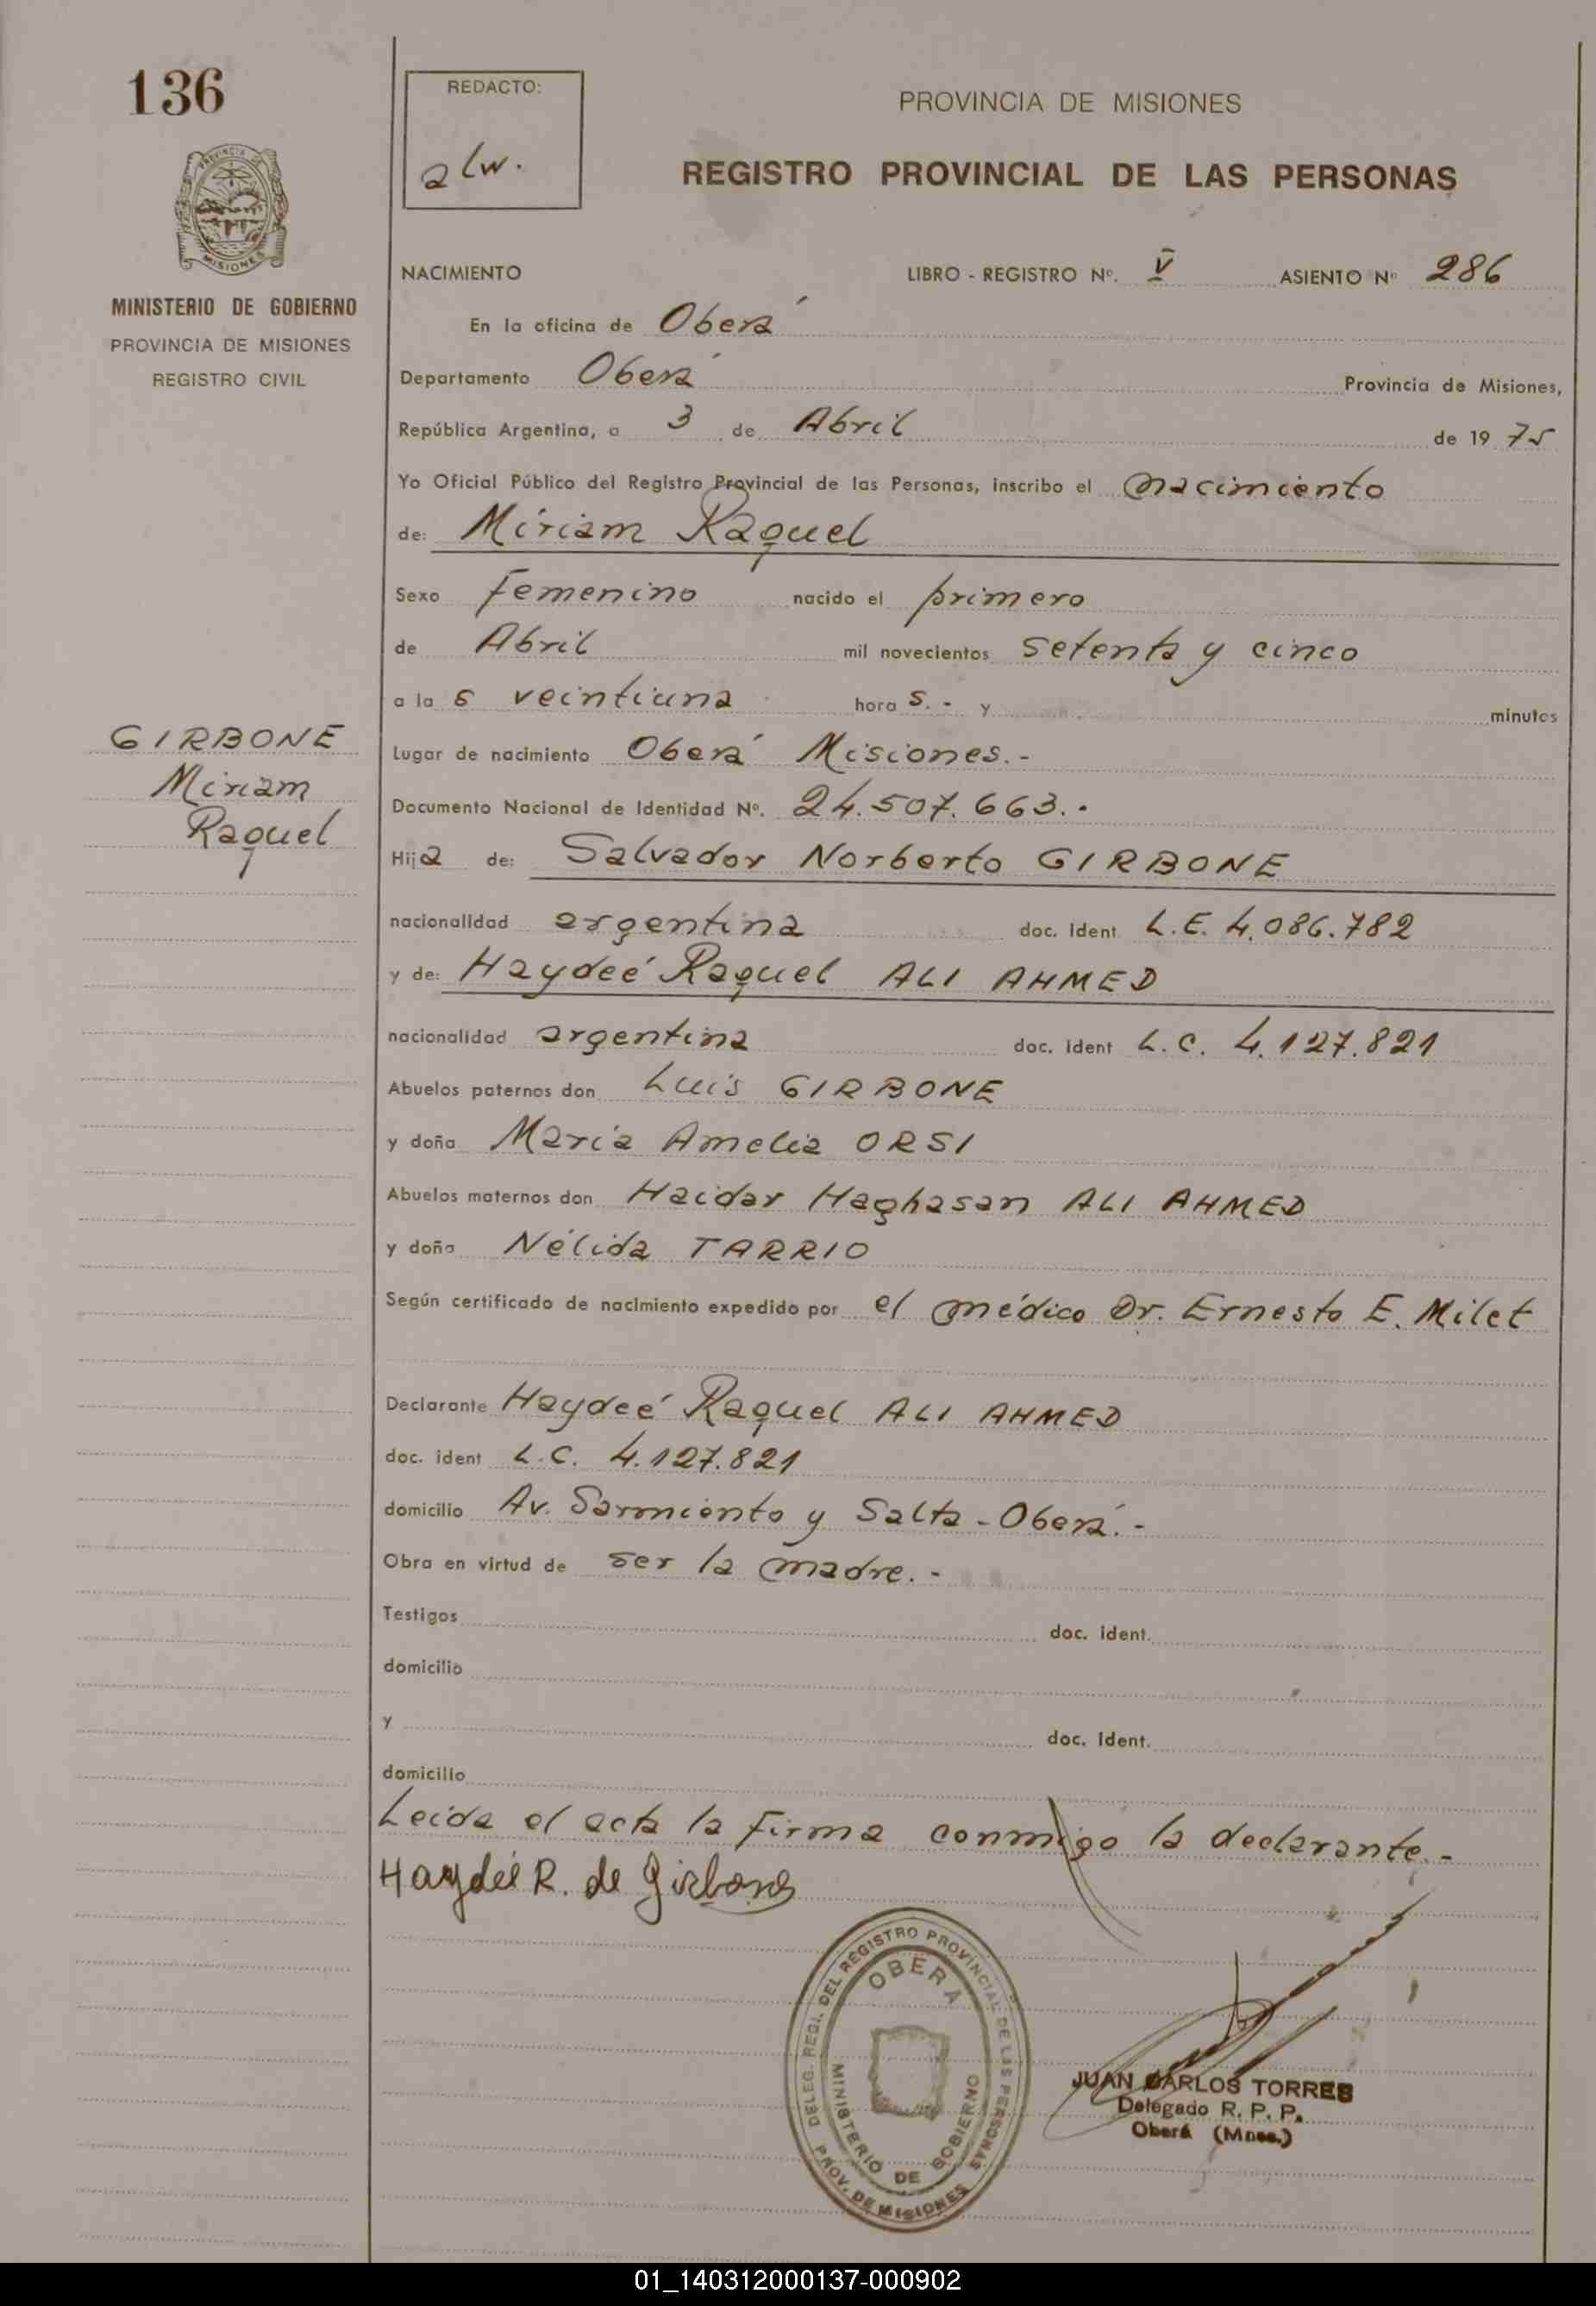 136
PROVINCIA DE
MISIONES
MINISTERIO DE GOBIERNO
PROVINCIA DE MISIONES
REGISTRO CIVIL
GIRBONE
Miriam
Raquel
REDACTO:
alw.
PROVINCIA DE MISIONES
REGISTRO PROVINCIAL DE LAS PERSONAS
NACIMIENTO LIBRO - REGISTRO Nº. V ASIENTO Nº 286
En la oficina de Oberá
Departamento Oberá Provincia de Misiones,
República Argentina, a 3 de Abril de 19 75
Yo Oficial Público del Registro Provincial de las Personas, inscribo el nacimiento
de: Miriam Raquel
Sexo Femenino nacido el primero
de Abril mil novecientos setenta y cinco
a la s veintiuna hora s.- y minutos
Lugar de nacimiento Oberá Misiones.-
Documento Nacional de Identidad Nº. 24.507.663.-
Hija de: Salvador Norberto GIRBONE
nacionalidad argentina doc. ident L.E. 4.086.782
y de: Haydeé Raquel ALI AHMED
nacionalidad argentina doc. ident L.C. 4.127.821
Abuelos paternos don Luis GIRBONE
y doña María Amelia ORSI
Abuelos maternos don Haidar Haghasan ALI AHMED
y doña Nélida TARRIO
Según certificado de nacimiento expedido por el médico Dr. Ernesto E. Milet
Declarante Haydeé Raquel ALI AHMED
doc. ident L.C. 4.127.821
domicilio Av. Sarmiento y Salta - Oberá.-
Obra en virtud de ser la madre.-
Testigos doc. ident.
domicilio
y doc. ident.
domicilio
Leída el acta la firma conmigo la declarante.-
Haydeé R. de Girbone
DELEG. REGI. DEL REGISTRO PROVINCIAL DE LAS PERSONAS
OBERA
MINISTERIO DE GOBIERNO
PROV. DE MISIONES
JUAN CARLOS TORRES
Delegado R. P. P.
Oberá (Mnes.)
01_140312000137-000902